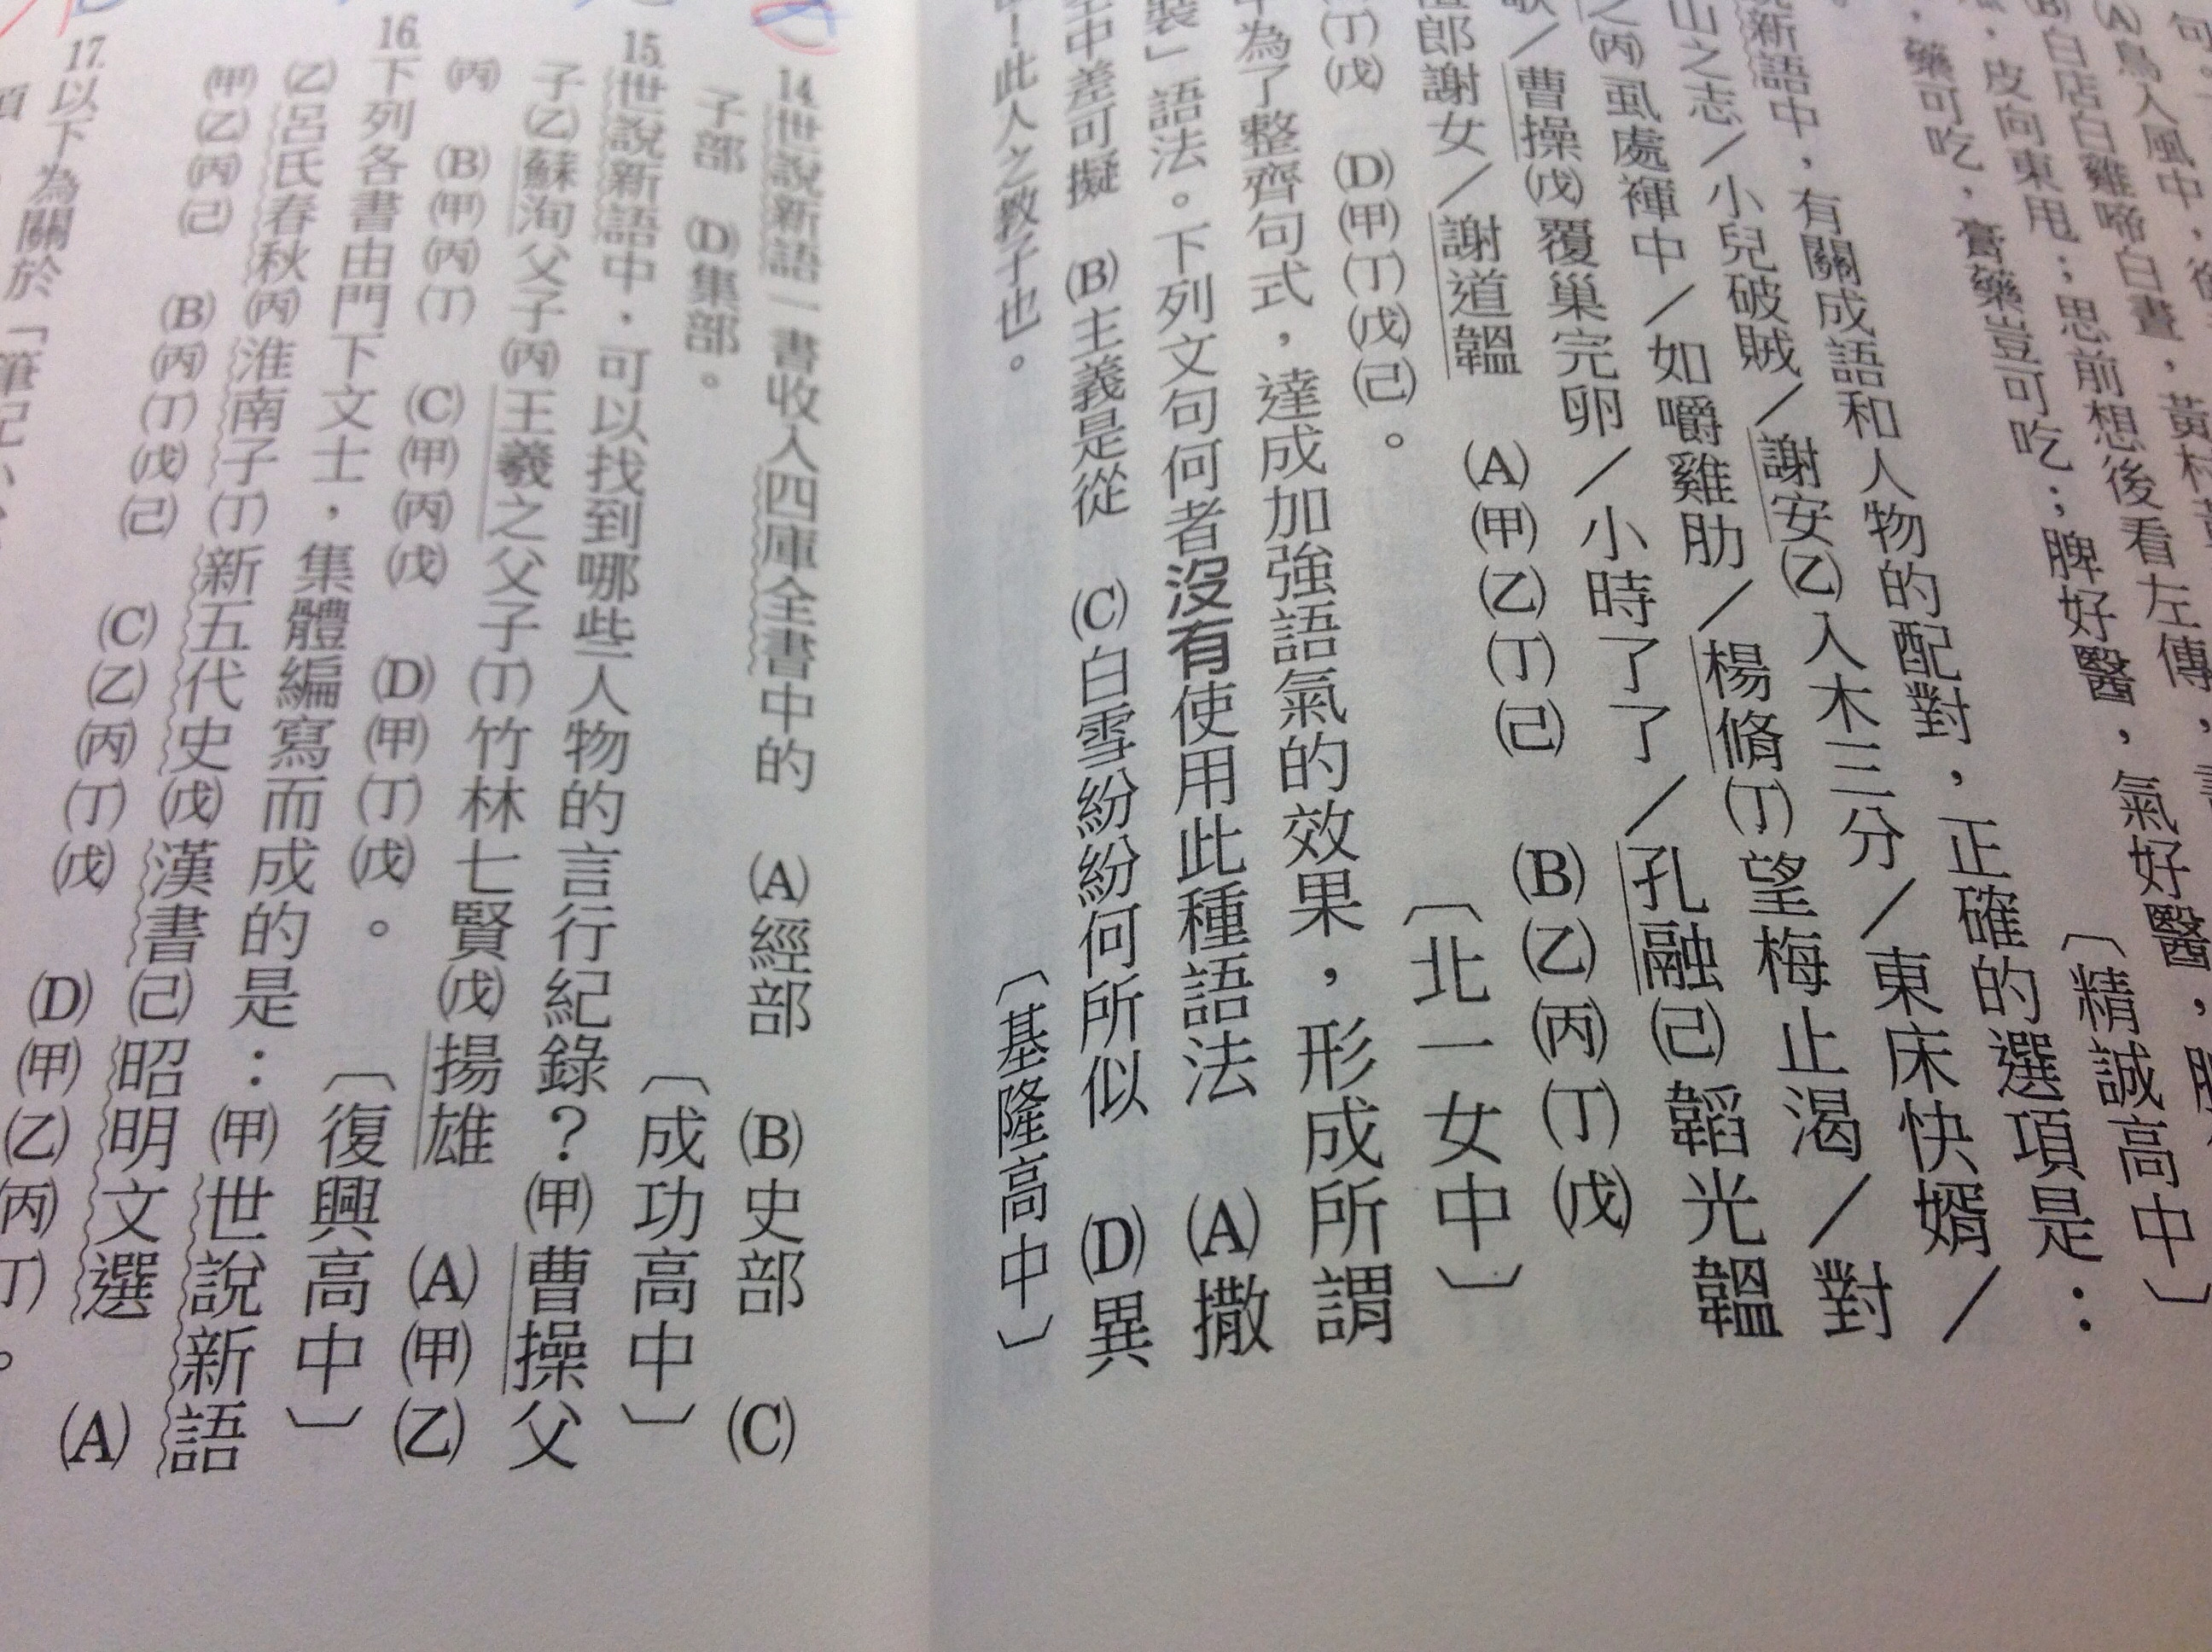 (A)鳥入風中，
(B)白店白雞啼白晝，黃村
，皮向東甩；思前想後看左傳，
，藥可吃，膏藥豈可吃；脾好醫，氣好醫，
〔精誠高中〕
說新語中，有關成語和人物的配對，正確的選項是：
山之志／小兒破賊／謝安(乙)入木三分／東床快婿／
之(丙)虱處褌中／如嚼雞肋／楊脩(丁)望梅止渴／對
歌／曹操(戊)覆巢完卵／小時了了／孔融(己)韜光韞
郎謝女／謝道韞　(A)(甲)(乙)(丁)(己)　(B)(乙)(丙)(丁)(戊)
(丁)(戊)　(D)(甲)(丁)(戊)(己)。　〔北一女中〕
中為了整齊句式，達成加強語氣的效果，形成所謂
裝」語法。下列文句何者沒有使用此種語法　(A)撒
空中差可擬　(B)主義是從　(C)白雪紛紛何所似　(D)異
！此人之教子也。　〔基隆高中〕
14.世說新語一書收入四庫全書中的　(A)經部　(B)史部　(C)
子部　(D)集部。　〔成功高中〕
15.世說新語中，可以找到哪些人物的言行紀錄？(甲)曹操父
子(乙)蘇洵父子(丙)王羲之父子(丁)竹林七賢(戊)揚雄　(A)(甲)(乙)
(丙)　(B)(甲)(丙)(丁)　(C)(甲)(丙)(戊)　(D)(甲)(丁)(戊)。　〔復興高中〕
16.下列各書由門下文士，集體編寫而成的是：(甲)世說新語
(乙)呂氏春秋(丙)淮南子(丁)新五代史(戊)漢書(己)昭明文選　(A)
(甲)(乙)(丙)(己)　(B)(丙)(丁)(戊)(己)　(C)(乙)(丙)(丁)(戊)　(D)(甲)(乙)(丙)(丁)。
17.以下為關於「筆記小